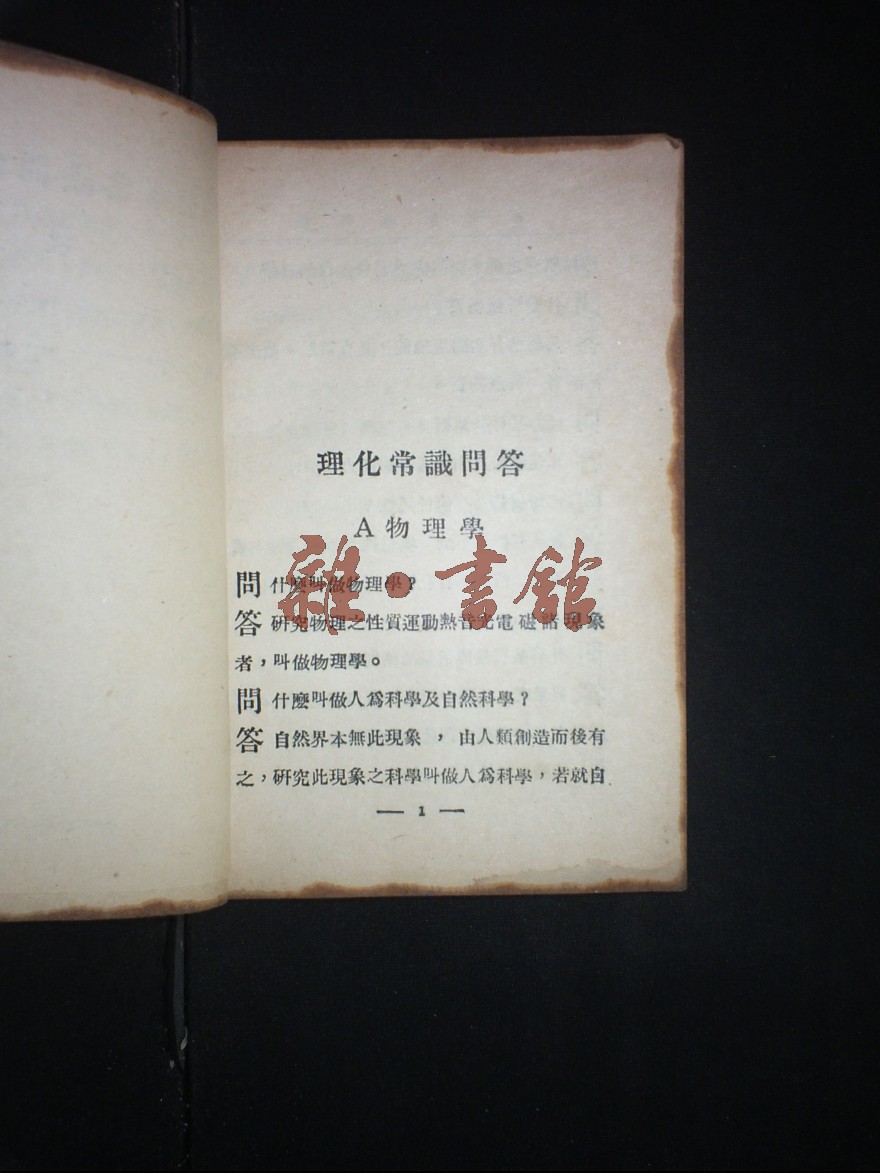 理化常識問答
A物理學
問 什麽叫做物理學？
答 研究物理之性質運動熱音光電磁諸現象
者，叫做物理學。
問 什麽叫做人爲科學及自然科學？
答 自然界本無此現象，由人類創造而後有
之，研究此現象之科學叫做人爲科學，若就自
— 1 —
雜·書館